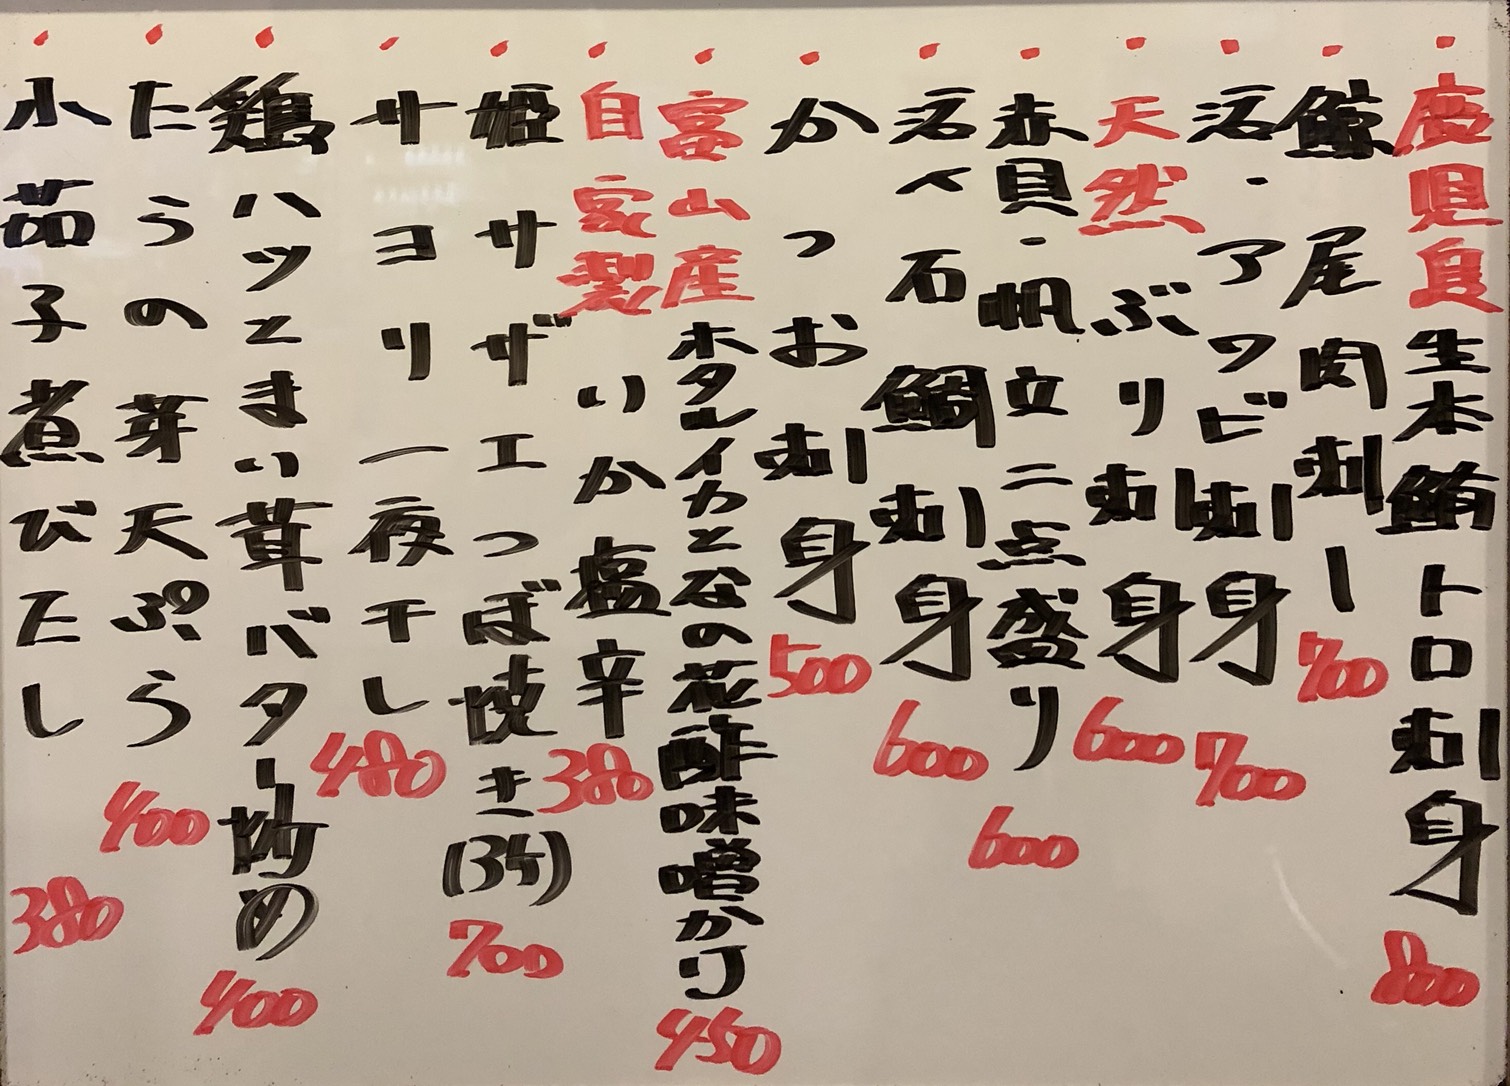 ・鹿児島生本鮪トロ刺身 800
・鯨尾肉刺し 700
・活・アワビ刺身 700
・天然ぶり刺身 600
・赤貝・帆立二点盛り 600
・活〆石鯛刺身 600
・かつお刺身 500
・富山産ホタルイカとなの花酢味噌かけ 450
・自家製いか塩辛 380
・姫サザエつぼ焼き(3ヶ) 700
・サヨリ一夜干し 480
・鶏ハツとまい茸バター炒め 400
・たらの芽天ぷら 400
・水茄子煮びたし 380